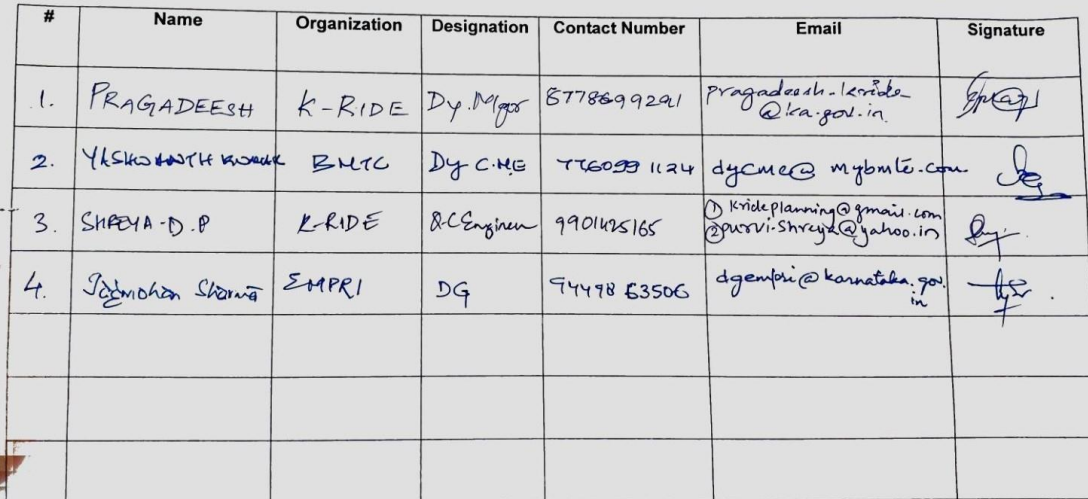 # Name Organization Designation Contact Number Email Signature
1. PRAGADEESH K-RIDE Dy. Mgr 8778699291 pragadeesh-kride
@ka.gov.in
2. YASHWANTH KUMAR BMTC Dy C.ME 7760991124 dycme@mybmtc.com
3. SHREYA-D.P K-RIDE Q.C Engineer 9901425165 ① krideplanning@gmail.com
② purvi.shreya@yahoo.in
4. Jagmohan Sharma EMPRI DG 9449863506 dgempri@karnataka.gov.
in